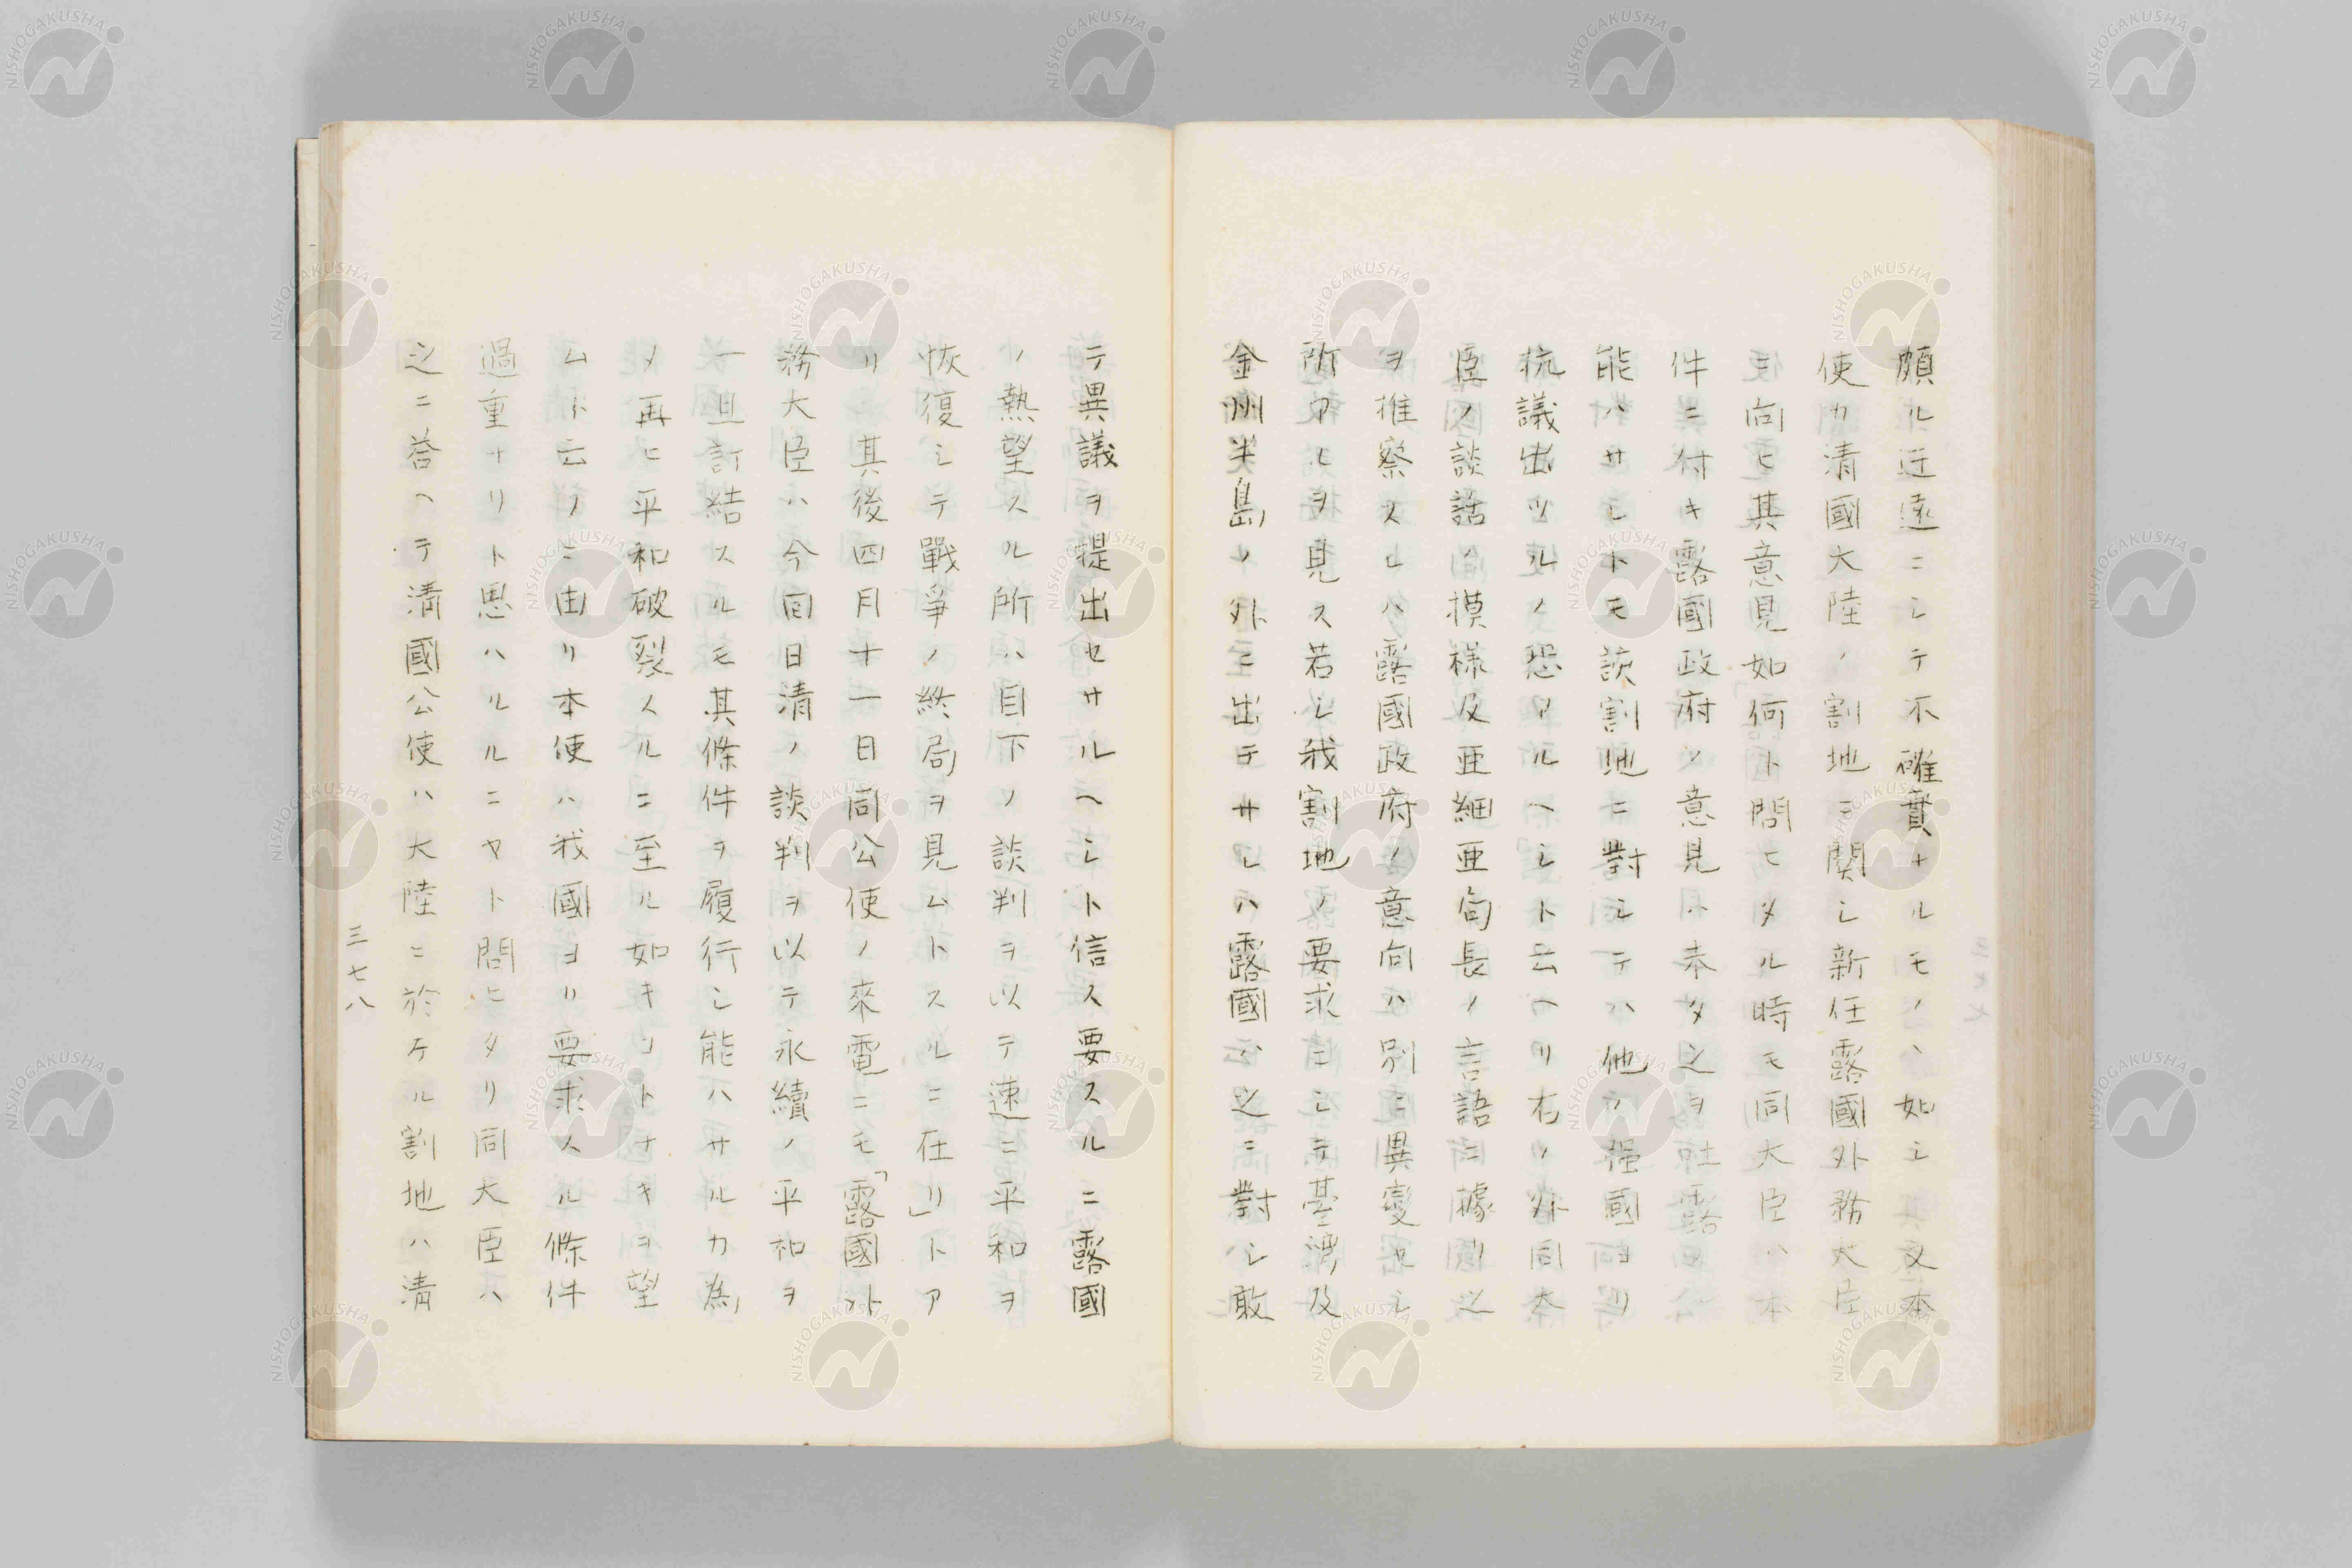 頗ル迂遠ニシテ不確實ナルモノヽ如シ其文本
使カ清國大陸ノ割地ニ関シ新任露國外務大臣
ニ向ヒ其意見如何ト問ヒタル時モ同大臣ハ本
件ニ付キ露國政府ノ意見ハ未タ之ヲ吐露
能ハサレトモ該割地ニ對シテハ他ノ强國ヨリ
抗議出ツルノ恐アルヘシト云ヘリ右ノ外同本
臣ノ談話ノ摸様及亜細亜局長ノ言語ニ據リ之
ヲ推察スレハ露國政府ノ意向ハ別ニ異變セシ
所アルヲ見ス若シ我割地ノ要求ニシテ臺湾及
金州半島ノ外ニ出テサレハ露國ハ之ニ對シ敢
テ異議ヲ提出セサルヘシト信ス要スルニ露國
ノ熱望スル所ハ目下ノ談判ヲ以テ速ニ平和ヲ
恢復シテ戰爭ノ終局ヲ見ムトスルニ在リ」トア
リ其後四月十一日同公使ノ來電ニモ「露國外
務大臣ハ今回日清ノ談判ヲ以テ永續ノ平和ヲ
一旦訂結スルモ其條件ヲ履行シ能ハサルカ為
メ再ヒ平和破裂スルニ至ル如キコトナキヲ望
ムト云フニ由リ本使ハ我國ヨリ要求スル條件
過重ナリト思ハルルニヤト問ヒタリ同大臣ハ
之ニ荅ヘテ清國公使ハ大陸ニ於ケル割地ハ清
三七八
NISHOGAKUSHA